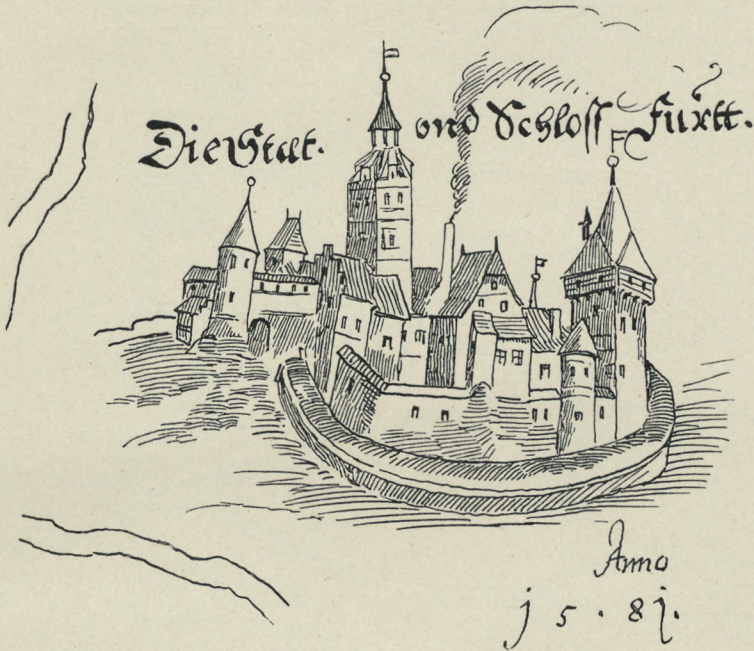 Die Stat. vnd Schloss Furtt.
Anno
j 5 . 8j.